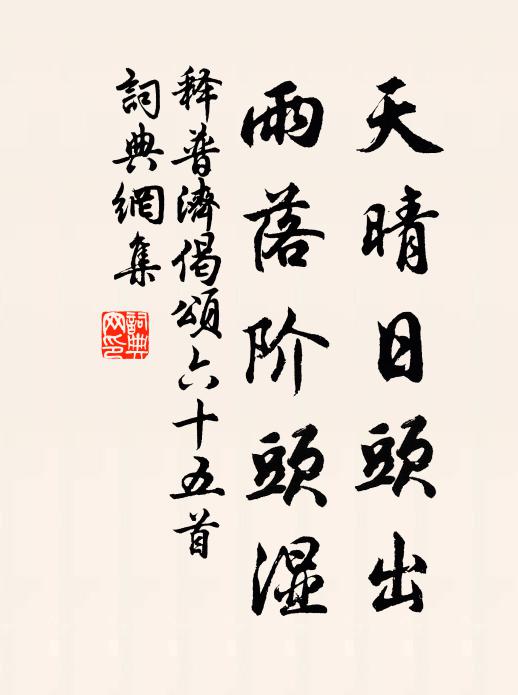 天晴日頭出
雨落阶頭湿
释普濟偈頌六十五首
詞典網集
詞典網印